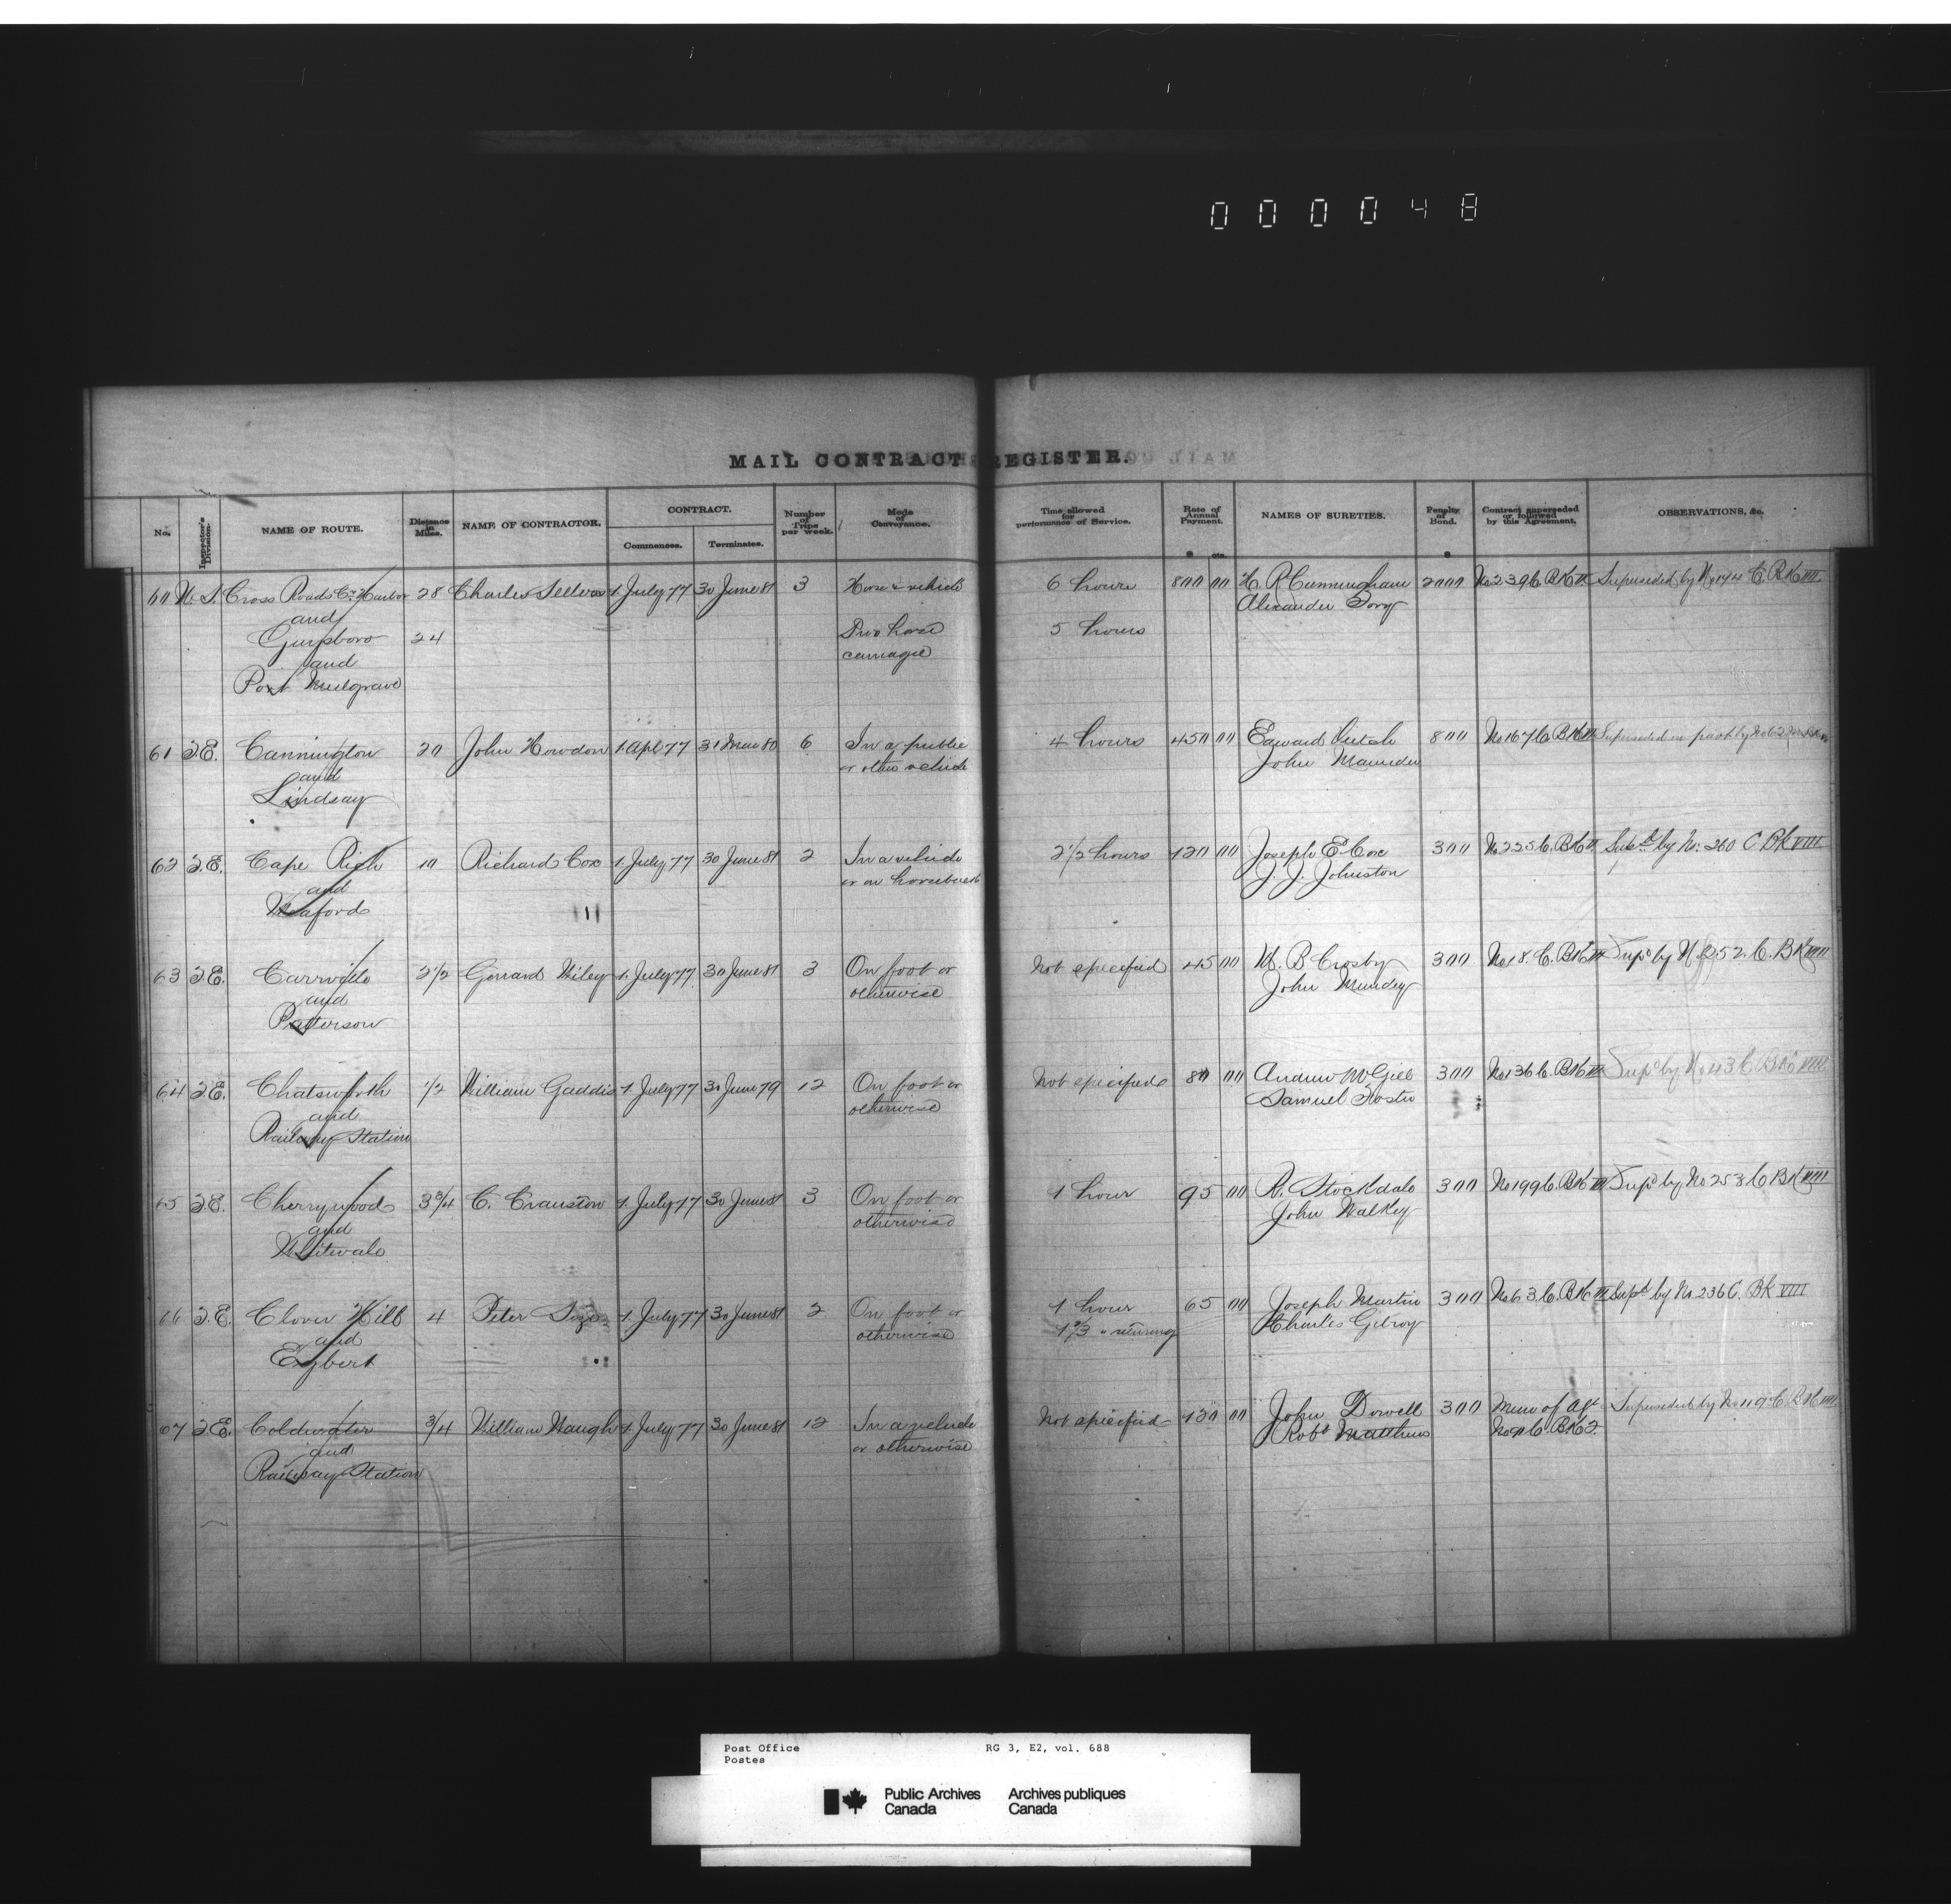 000048
MAIL CONTRACT REGISTER.
No. Inspector's Division. NAME OF ROUTE. Distance in Miles. NAME OF CONTRACTOR. CONTRACT. Commences. Terminates. Number of Trips per week. Mode of Conveyance. Time allowed for performance of Service. Rate of Annual Payment. $ cts. NAMES OF SURETIES. Penalty of Bond. $ Contract superseded or followed by this Agreement. OBSERVATIONS, &c.
60 N.S. Cross Roads Co. Harbor 28 Charles 1 July 77 30 June 81 3 Horse & vehicle 6 hours 800 00 H. R. Cunningham 2000 No 239 C. BK II Superseded by No 144 C. BK VIII
and Alexander
Guysboro 24 Two horse 5 hours
and carriage
Port Mulgrave
61 2E. Cannington 20 John Howdon 1 Apl 77 31 Mar 80 6 In a public 4 hours 450 00 Edward 800 No 167 C. BK II Superseded in part by No 62
and or other vehicle John Maunder
Lindsay
62 2.E. Cape Rich 10 Richard Cox 1 July 77 30 June 81 2 In a vehicle 2 1/2 hours 120 00 Joseph E. Cox 300 No 225 C. BK II Supd by No. 260 C BK VIII
and or on horseback J. J. Johnston
Meaford
63 2E. Carrville 2 1/2 Gerrard Wiley 1 July 77 30 June 81 3 On foot or Not specified 45 00 W. B Crosby 300 No 18. C. BK III Supd by No 252. C. BK VIII
and otherwise John Mundey
Patterson
64 2E. Chatsworth 1/2 William Gaddis 1 July 77 30 June 79 12 On foot or Not specified 80 00 Andrew McGill 300 No 136 C. BK III Supd by No 43 C BK VIII
and otherwise Samuel Foster
Railway Station
65 2E. Cherrywood 3 3/4 C. Cranston 1 July 77 30 June 81 3 On foot or 1 hour 95 00 R. Stockdale 300 No 199 C. BK III Supd by No 253 C BK VIII
and otherwise John Walkey
Whitevale
66 2.E. Clover Hill 4 Peter 1 July 77 30 June 81 2 On foot or 1 hour 65 00 Joseph Martin 300 No 63. C. BK III Supd by No 236 C. BK VIII
and otherwise 1 2/3 " returning Charles Gilroy
Egbert
67 2.E. Coldwater 3/4 William Waugh 1 July 77 30 June 81 12 In a vehicle Not specified 120 00 John Dowell 300 Mem of Agt Superseded by No 119 C. BK VIII
and or otherwise Robt Matthews C. BK 2.
Railway Station
Post Office RG 3, E2, vol. 688
Postes
Public Archives Archives publiques
Canada Canada